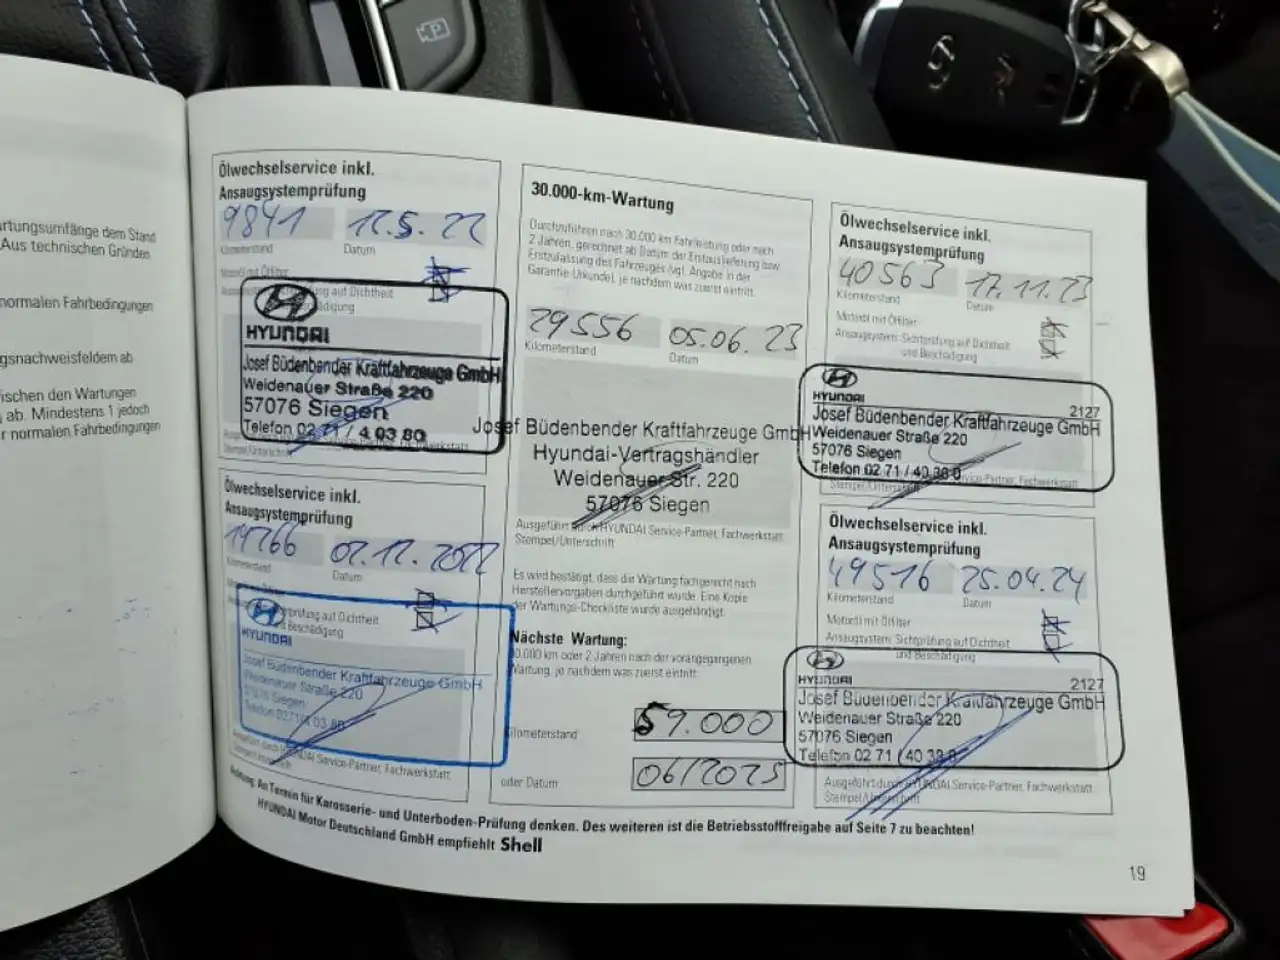 rtungsumfänge dem Stand
Aus technischen Gründen
normalen Fahrbedingungen
gsnachweisfeldern ab
ischen den Wartungen
ab. Mindestens 1 jedoch
r normalen Fahrbedingungen
Ölwechselservice inkl.
Ansaugsystemprüfung
9841 12.5. 22
Kilometerstand Datum
Motoröl mit Ölfilter
prüfung auf Dichtheit
digung
HYUNDAI
Josef Büdenbender Kraftfahrzeuge GmbH
Weidenauer Straße 220
57076 Siegen
Telefon 02 71 / 4 03 80
Partner, Fachwerkstatt
Stempel/Unterschrift
Ölwechselservice inkl.
Ansaugsystemprüfung
19766 02.12.2022
Kilometerstand Datum
prüfung auf Dichtheit
Beschädigung
HYUNDAI
Josef Büdenbender Kraftfahrzeuge GmbH
Weidenauer Straße 220
57076 Siegen
Telefon 0271/4 03 80
Ausgeführt durch HYUNDAI Service-Partner, Fachwerkstatt
30.000-km-Wartung
Durchzuführen nach 30.000 km Fahrleistung oder nach
2 Jahren, gerechnet ab Datum der Erstauslieferung bzw.
Erstzulassung des Fahrzeuges (vgl. Angabe in der
Garantie-Urkunde), je nachdem was zuerst eintritt.
29556 05.06.23
Kilometerstand Datum
Josef Büdenbender Kraftfahrzeuge GmbH
Hyundai-Vertragshändler
Weidenauer Str. 220
57076 Siegen
Ausgeführt durch HYUNDAI Service-Partner, Fachwerkstatt
Stempel/Unterschrift
Es wird bestätigt, dass die Wartung fachgerecht nach
Herstellervorgaben durchgeführt wurde. Eine Kopie
der Wartungs-Checkliste wurde ausgehändigt.
Nächste Wartung:
30.000 km oder 2 Jahren nach der vorangegangenen
Wartung, je nachdem was zuerst eintritt.
Kilometerstand 59.000
oder Datum 06/2025
Ölwechselservice inkl.
Ansaugsystemprüfung
40563 17.11.23
Kilometerstand Datum
Motoröl mit Ölfilter
Ansaugsystem: Sichtprüfung auf Dichtheit
und Beschädigung
HYUNDAI 2127
Josef Büdenbender Kraftfahrzeuge GmbH
Weidenauer Straße 220
57076 Siegen
Telefon 02 71 / 40 38 0
Service-Partner, Fachwerkstatt
Stempel/Unterschrift
Ölwechselservice inkl.
Ansaugsystemprüfung
49516 25.04.24
Kilometerstand Datum
Motoröl mit Ölfilter
Ansaugsystem: Sichtprüfung auf Dichtheit
und Beschädigung
HYUNDAI 2127
Josef Büdenbender Kraftfahrzeuge GmbH
Weidenauer Straße 220
57076 Siegen
Telefon 02 71 / 40 38 0
Ausgeführt durch HYUNDAI Service-Partner, Fachwerkstatt
Stempel/Unterschrift
Achtung: An Termin für Karosserie- und Unterboden-Prüfung denken. Des weiteren ist die Betriebsstofffreigabe auf Seite 7 zu beachten!
HYUNDAI Motor Deutschland GmbH empfiehlt Shell
19